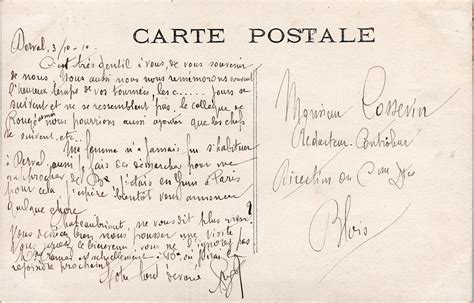 Derval, 3/10-10.
CARTE POSTALE
C'est très gentil à vous, de vous souvenir
de nous. Nous aussi nous nous remémorons souvent
l'heureux temps de vos tournées, les c..... jours se
suivent et ne se ressemblent pas. Le collègue de
Rougé nous pourrions aussi ajouter que les chefs
se suivent.. etc..
Ma femme n'a jamais pu s'habituer
à Derval, aussi je fais des démarches pour me
rapprocher de j'étais en Juin à Paris
pour cela j'espère bientôt vous annoncer
quelque chose.
Chateaubriant, ne vous dit plus rien?
Vous devriez bien nous pousser une visite
vous seriez le bienvenu vous ne l'ignorez pas
Mme actuellement à
rejoindre prochain
Votre tout dévoué
Monsieur Cosseron
Rédacteur-Contrôleur
Direction des
Blois